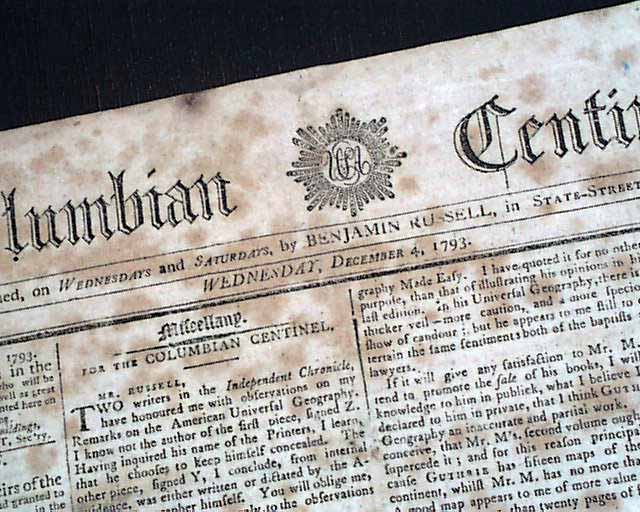 lumbian Centin
on Wednesdays and Saturdays, by BENJAMIN RUSSELL, in State-Street
WEDNESDAY, December 4, 1793.
1793.
in the
who will be
well as great
on
Sec'ry.
eirs of the
granted to
in the
Miscellany.
FOR THE COLUMBIAN CENTINEL.
MR. RUSSELL,
TWO writers in the Independent Chronicle,
have honoured me with observations on my
Remarks on the American Universal Geography.
I know not the author of the first piece, signed Z.
Having inquired his name of the Printers, I learn,
that he chooses to keep himself concealed. The
other piece, signed Y, I conclude, from internal
evidence, was either written or dictated by the
himself. You will oblige me,
to the observations
graphy Made Easy. I have quoted it for no other
purpose, than that of illustrating his opinions in his
last edition. In his Universal Geography, there is
thicker veil—more caution, and a more specious
show of candour; but he appears to me still to
tertain the same sentiments both of the baptists
lawyers.
If it will give any satisfaction to Mr. M.
tend to promote the sale of his books, I will
knowledge to him in publick, what I believe I
declared to him in private, that I think Guthrie's
Geography an inaccurate and partial work.
conceive, that Mr. M's. second volume ought
supercede it; and for this reason principally
cause Guthrie has fifteen maps of
continent, whilst Mr. M. has no more than
A good map appears to me of more value
than twenty pages of